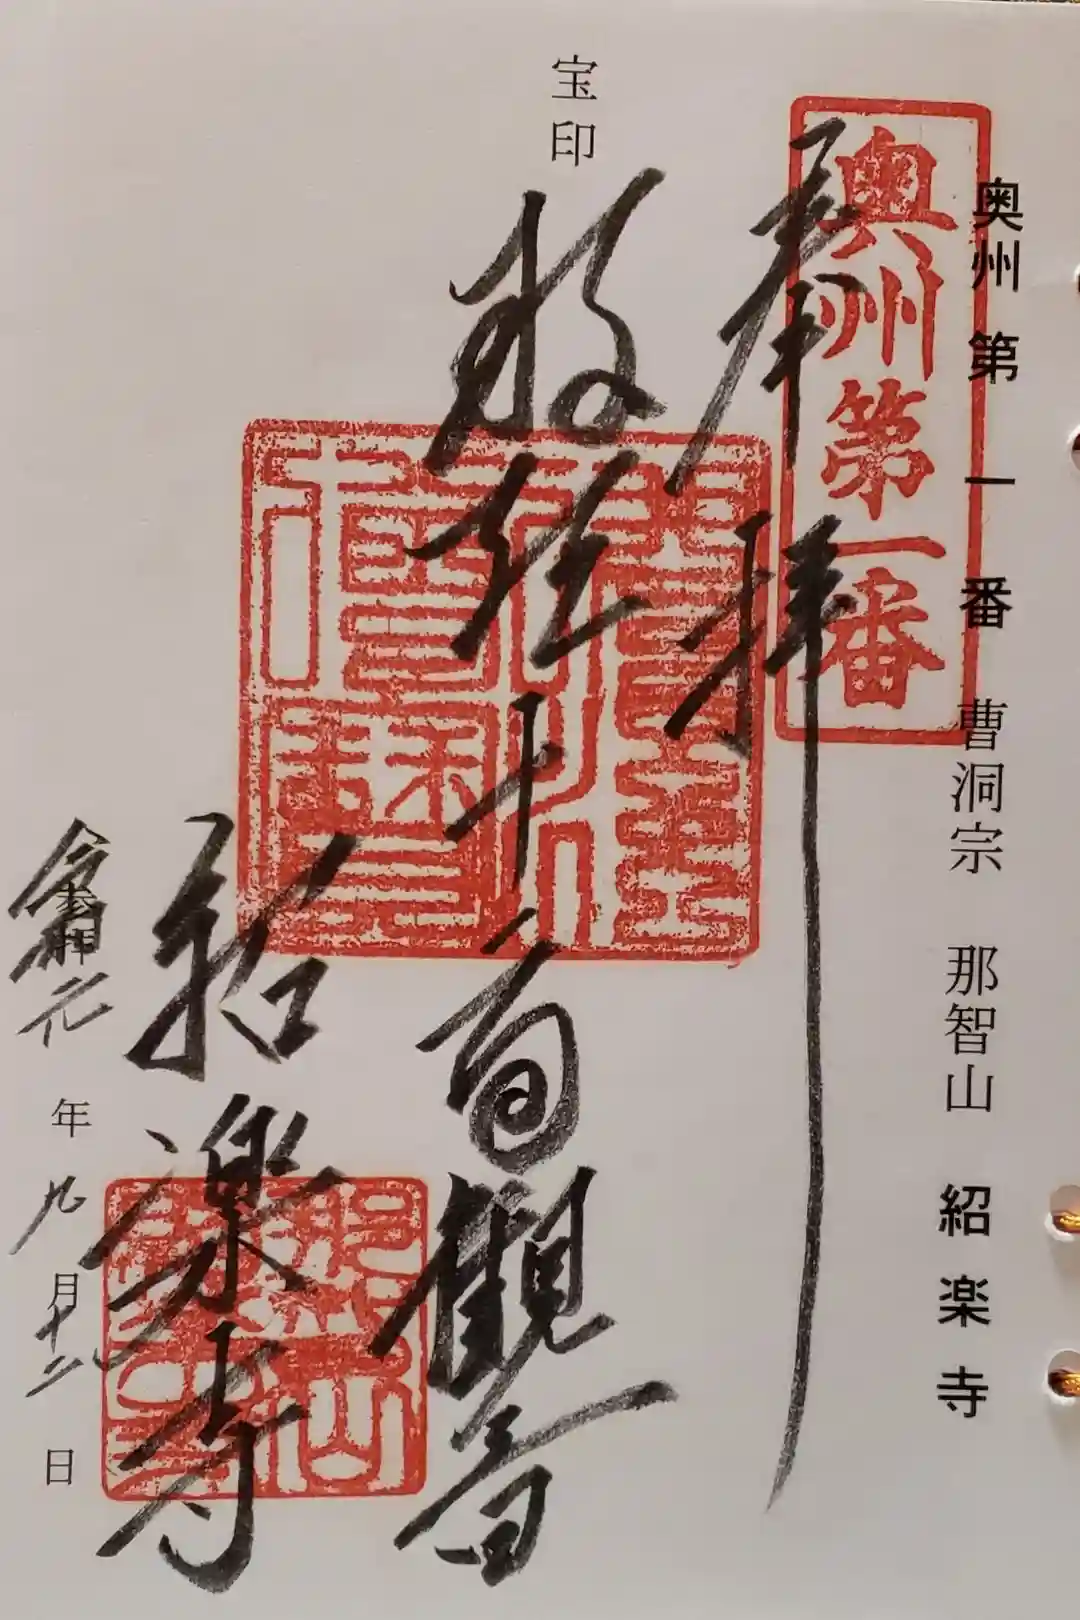 奥州第一番 曹洞宗 那智山 紹楽寺
奥州第一番
奉拝
宝印
十一面觀音
紹楽寺
令和元年九月十二日